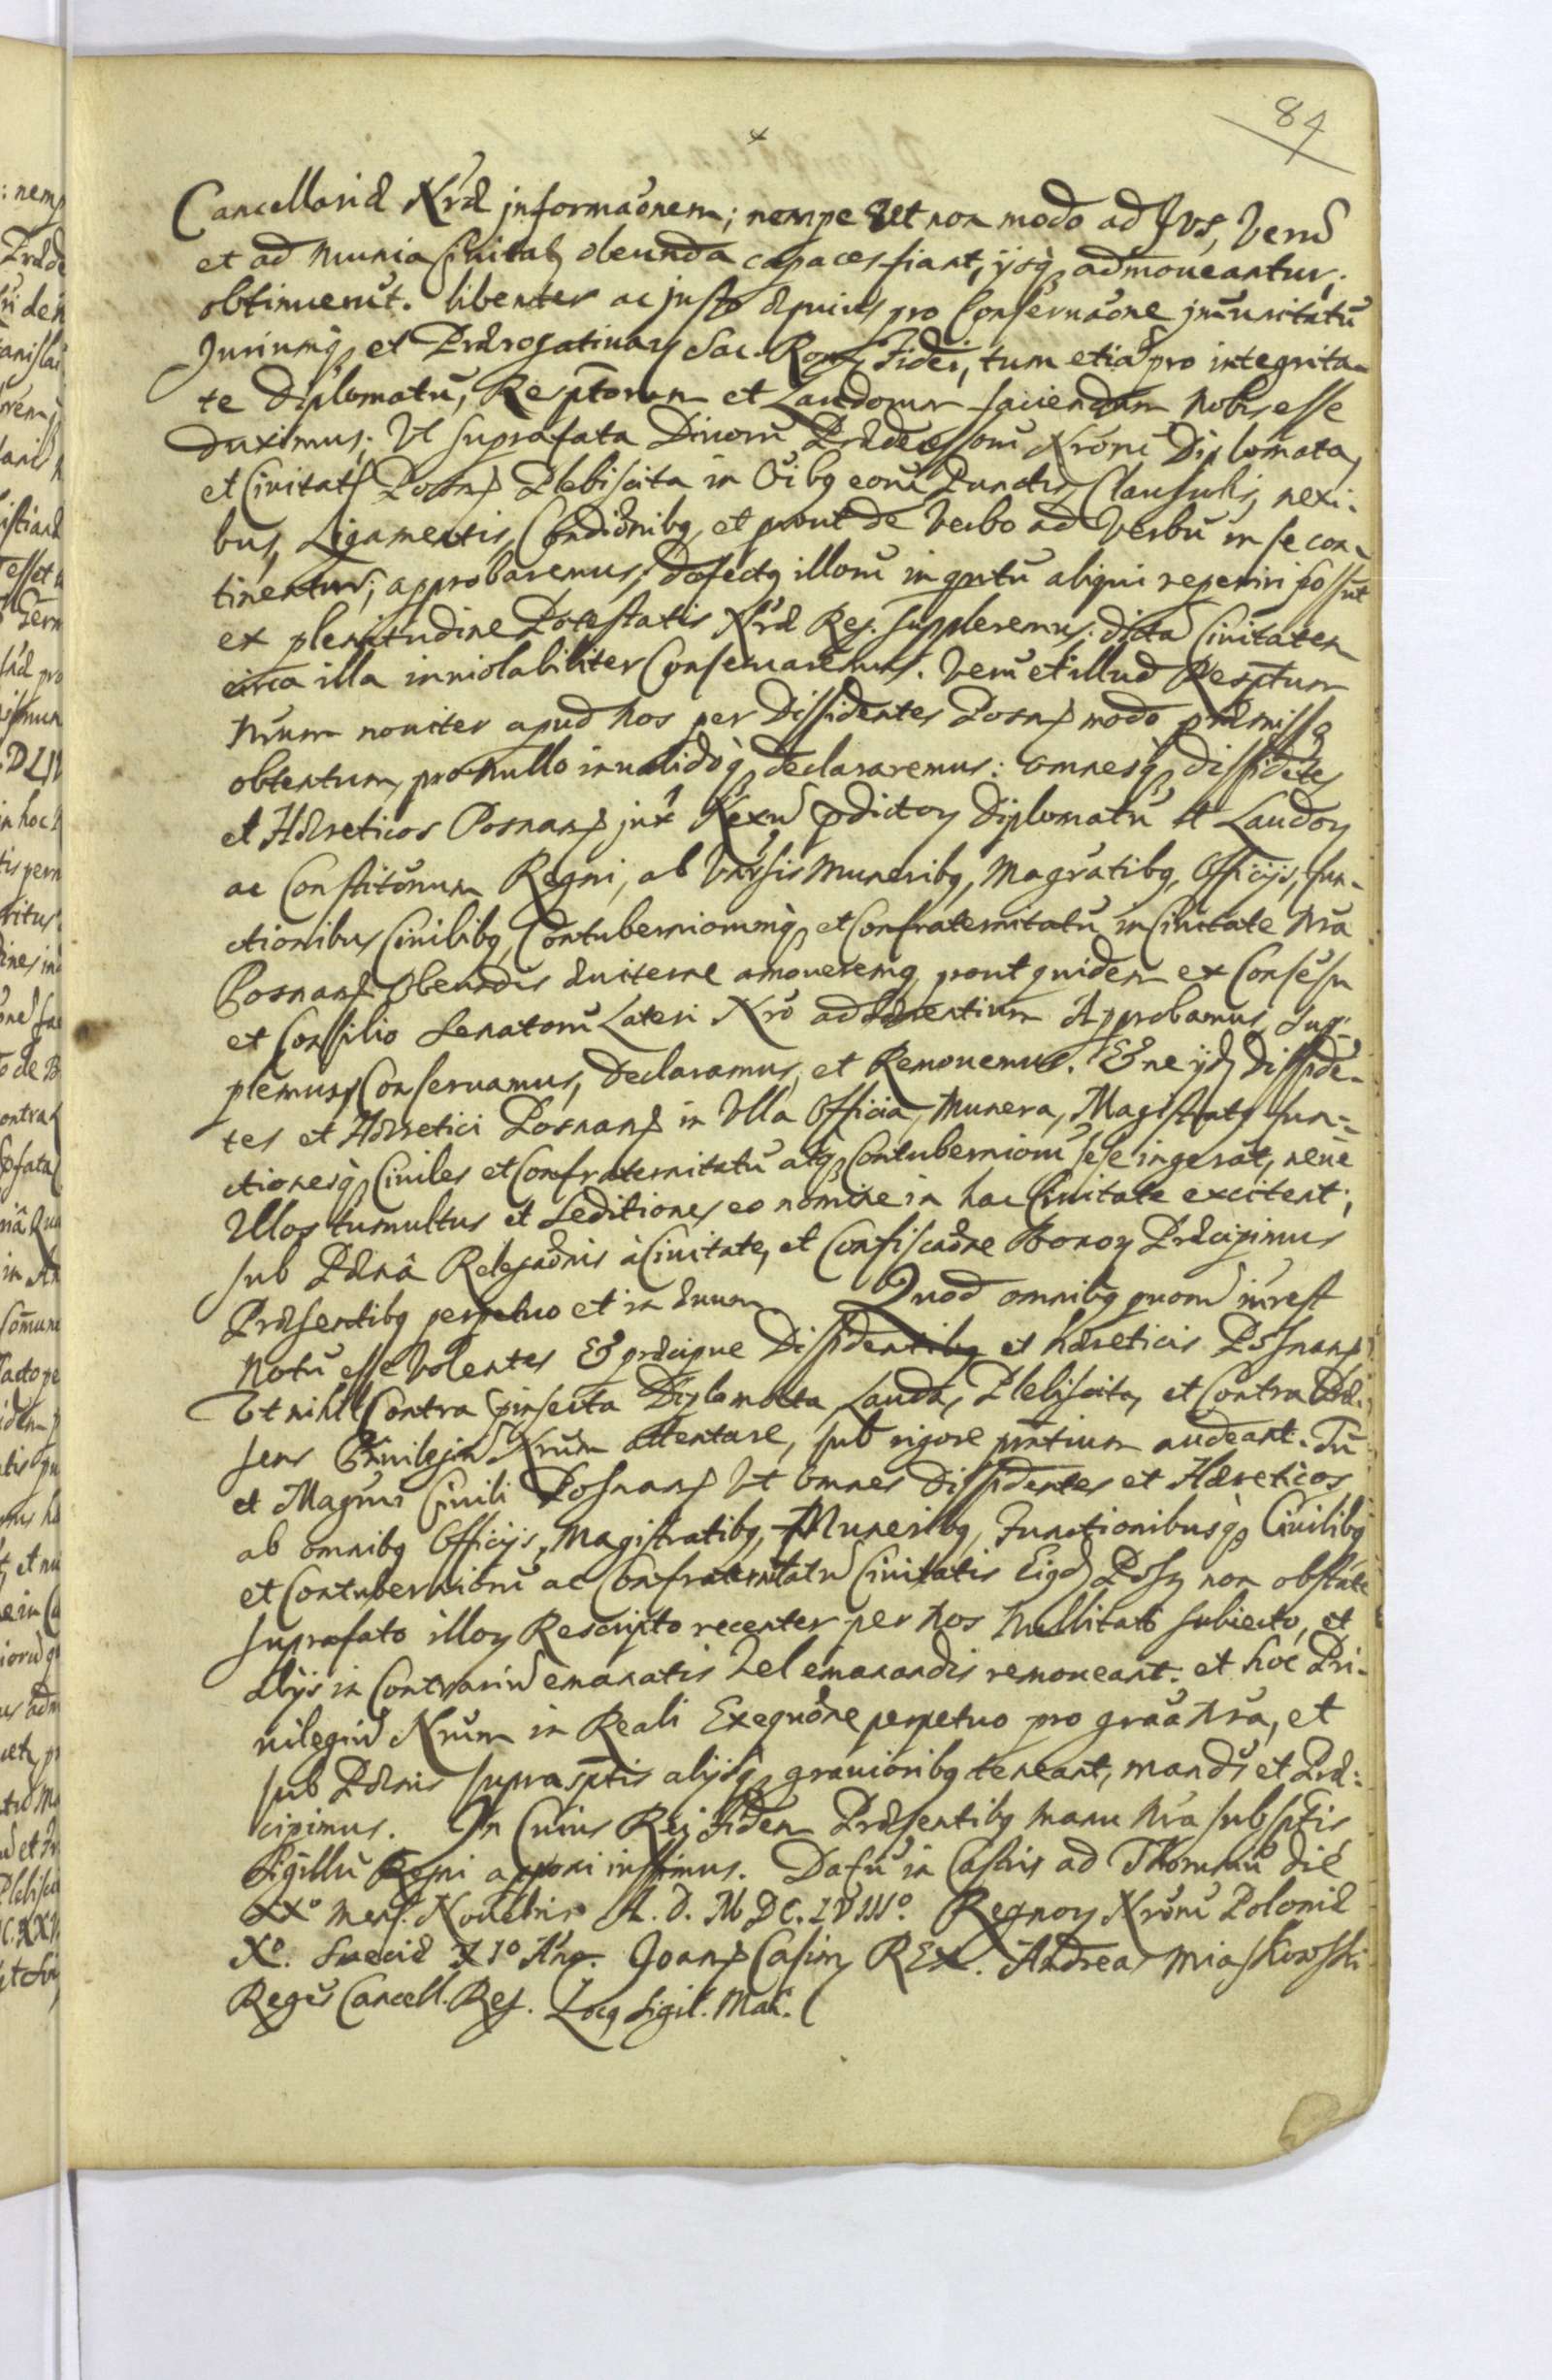 84
Cancellariæ Nræ informaõnem; nempe Ut non modo ad Jus, Verũ
et ad munia Civitatis obeunda capaces fiant, ijsq; admoveantur;
obtinuerũt. libenter ac justo pro Conservaõne im̃unitatũ
Juriumq; et Prærogativaꝝ Sac. Rom. Fidei, tum etiã pro integrita-
te Diplomatũ, Resp̃torum et Laudorum faciendum Nobis esse
duximus; Ut suprafata Divorũ Prædecessorũ Nrorũ Diplomata,
et Civitatis Posn: Plebiscita in Oĩbq eorũ Punctis, Clausulis, nexi-
bus, Ligamentis, Condiõnibq, et prout de Verbo ad Verbũ in se con-
tinentur; approbaremus; defectq illorũ in qntũ aliqui reperiri possũt
ex plenitudine Potestatis Nræ Reg. suppleremus; dictã Civitatem
circa illa inviolabiliter Conservaremus. Verũ et illud Resp̃tum
Nrum noviter apud Nos per Dissidentes Posn: modo præmisso
obtentum, pro nullo invalidoq; declararemus: omnesq; dissidẽtes
et Hæreticos Posnan: juxᵃ Nexũ p̱dictoꝝ Diplomatũ et Laudoꝝ
ac Constitõnum Regni, ab Unrsis Muneribq, Magrãtibq, Officijs, fun-
ctionibus Civilibq, Contuberniorumq; et Confraternitatũ in Civitate Nra
Posnan: Obeundis æviterne amoveremq, prout quidem ex Consẽsu
et Consilio Senatorũ Lateri Nrõ adhærentium Approbamus, sup-
plemus, Conservamus, Declaramus, et Removemus. Et ne ijd. Disside-
tes et Hæretici Posnan: in Ulla Officia, Munera, Magistratq fun-
ctionesq; Civiles et Confraternitatũ atq; Contuberniorũ sese ingerãt, neve
Ullos tumultus et Seditiones eo nomine in hac Civitate excitent;
sub Pænâ Relegaõnis à Civitate, et Confiscaõne Bonoꝝ Præcipimus
Præsentibq perpetuo et in ævum. Quod omnibq quorũ inrest
Notũ esse Volentes & præcipue Dissidentibq et hæreticis Posnan:
Ut nihil Contra p̱inserta Diplomata Lauda, Plebiscita, et Contra Præ-
sens Privilegiũ Nrum attentare, sub rigore pñtium audeant. Tũ
et Magrui Civili Posnan: Ut omnes Dissidentes et Hæreticos
ab omnibq Officijs, Magistratibq, Muneribq, Functionibusq; Civilibq
et Contuberniorũ ac Confraternitatũ Civitatis Eigd. Posn non obstãte
suprafato illoꝝ Rescripto recenter per Nos Nullitati subiecto, et
Alijs in Contrariũ emanatis Vel emanandis removeant: et hoc Pri-
vilegiũ Nrum in Reali Exequõne perpetuo pro graã Nrã, et
sub Pænis suprasp̃tis alijsq; gravioribq teneant, mandũs et Præ-
cipimus. In Cuius Rei Fidem Præsentibq manu Nra subsp̃tis
Sigillũ Regni apponi iussimus. Datũ in Castris ad Thorunũ die
XXº mens. Novẽbris A. D. M DC. LVIIIº. Regnoꝝ Nrorũ Poloniæ
Xº. Sueciæ XIº Año. Joan: Casim: REX. Andreas Miaskowski
Regẽs Cancell. Reg. Locq Sigil. Mai.